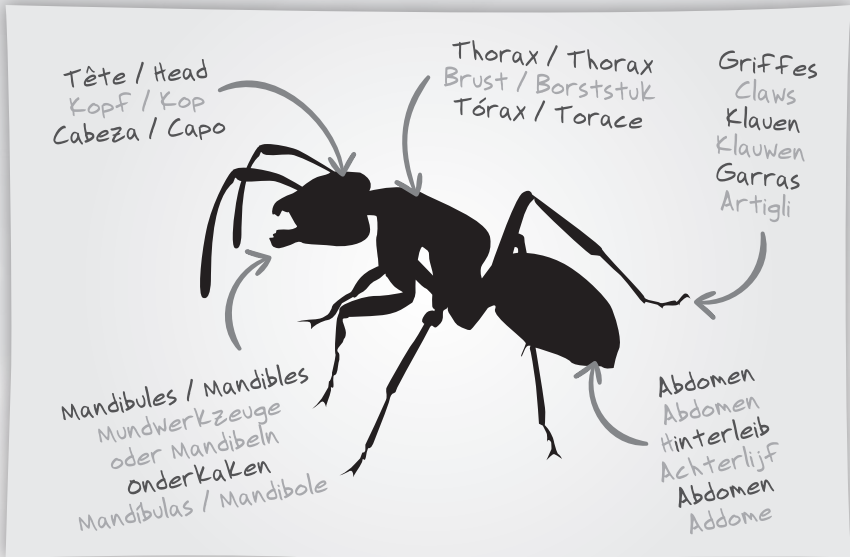 Tête / Head
Kopf / Kop
Cabeza / Capo
Thorax / Thorax
Brust / Borststuk
Tórax / Torace
Griffes
Claws
Klauen
Klauwen
Garras
Artigli
Mandibules / Mandibles
Mundwerkzeuge
oder Mandibeln
onderkaken
Mandíbulas / Mandibole
Abdomen
Abdomen
Hinterleib
Achterlijf
Abdomen
Addome